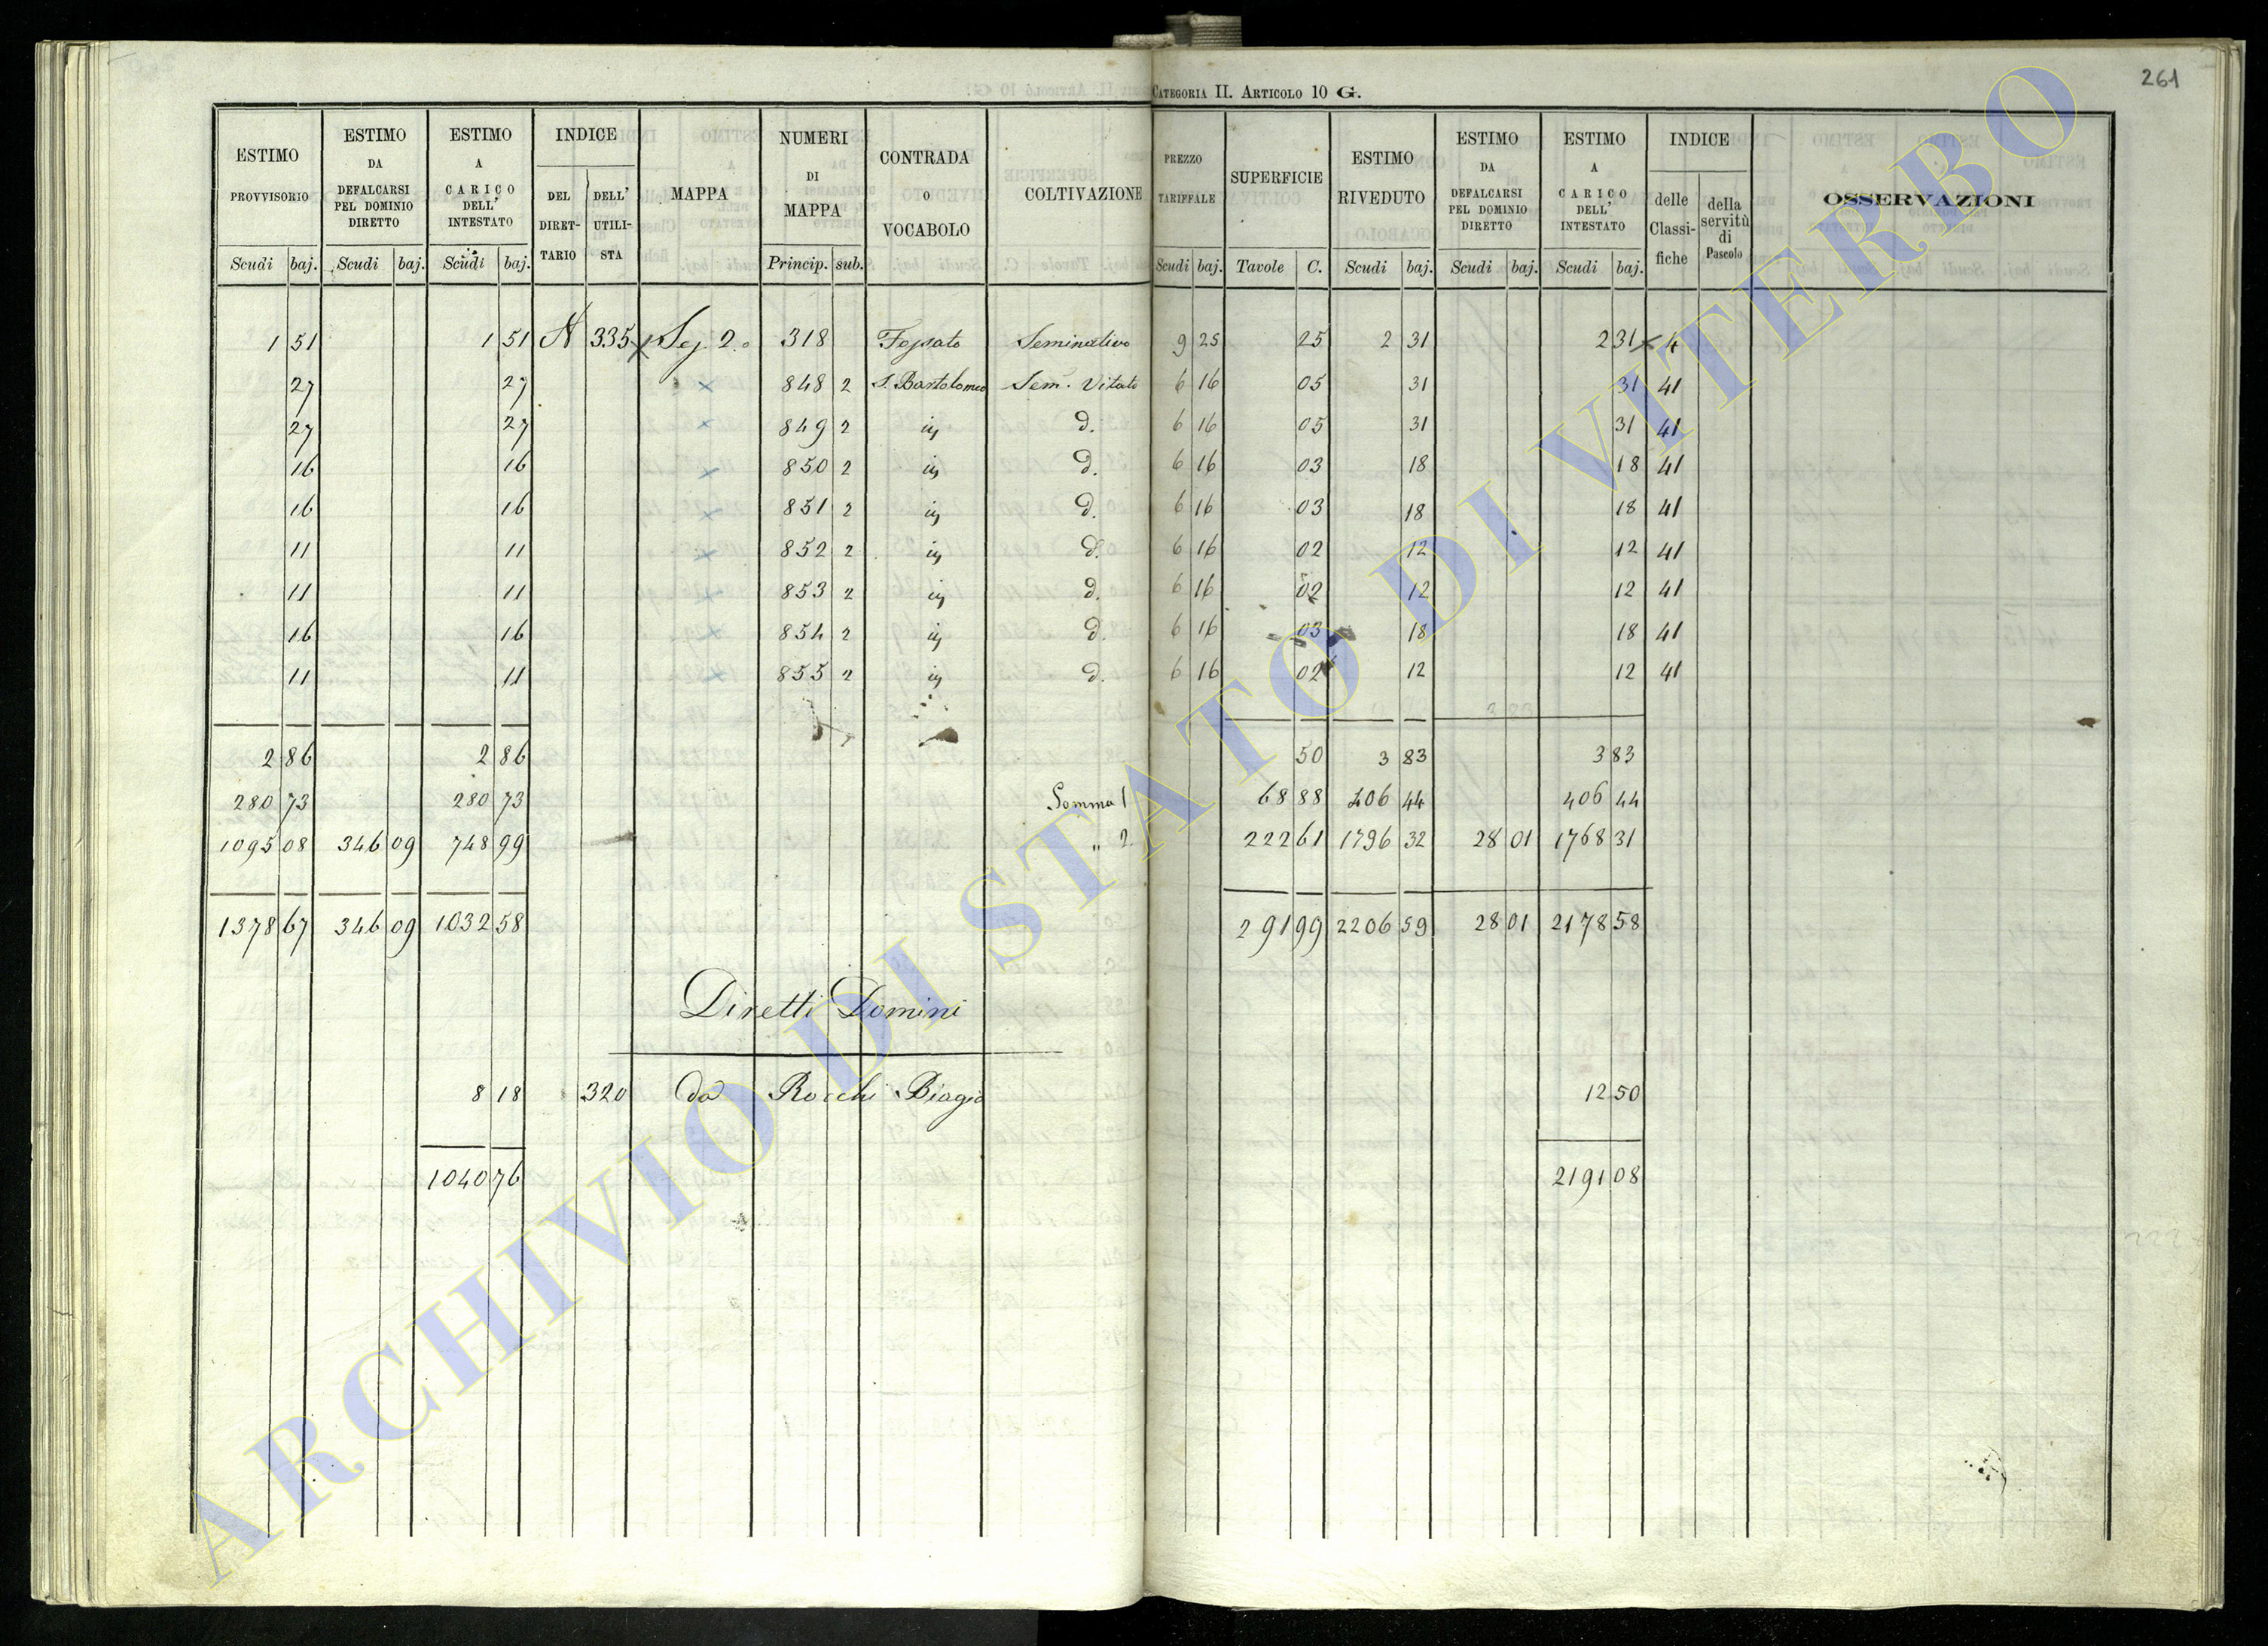 CATEGORIA II. ARTICOLO 10 G.
261
ESTIMO PROVVISORIO Scudi baj. ESTIMO DA DEFALCARSI PEL DOMINIO DIRETTO Scudi baj. ESTIMO A CARICO DELL' INTESTATO Scudi baj. INDICE DEL DIRETTARIO DELL' UTILISTA MAPPA NUMERI DI MAPPA Princip. sub. CONTRADA O VOCABOLO COLTIVAZIONE PREZZO TARIFFALE Scudi baj. SUPERFICIE Tavole C. ESTIMO RIVEDUTO Scudi baj. ESTIMO DA DEFALCARSI PEL DOMINIO DIRETTO Scudi baj. ESTIMO A CARICO DELL' INTESTATO Scudi baj. INDICE delle Classifiche della servitù di Pascolo OSSERVAZIONI
1 51 1 51 A 335 Sez. 2.a 318 Fossato Seminativo 9 25 25 2 31 2 31 4
27 27 848 2 S. Bartolomeo Sem. Vitato 6 16 05 31 31 41
27 27 849 2 iv d. 6 16 05 31 31 41
16 16 850 2 iv d. 6 16 03 18 18 41
16 16 851 2 iv d. 6 16 03 18 18 41
11 11 852 2 iv d. 6 16 02 12 12 41
11 11 853 2 iv d. 6 16 02 12 12 41
16 16 854 2 iv d. 6 16 03 18 18 41
11 11 855 2 iv d. 6 16 02 12 12 41
2 86 2 86 50 3 83 3 83
280 73 280 73 Somma 1 68 88 406 44 406 44
1095 08 346 09 748 99 " 2 222 61 1796 32 28 01 1768 31
1378 67 346 09 1032 58 291 99 2206 59 28 01 2178 58
Diretti Domini
8 18 320 da Rocchi Biagio 12 50
1040 76 2191 08
ARCHIVIO DI STATO DI VITERBO